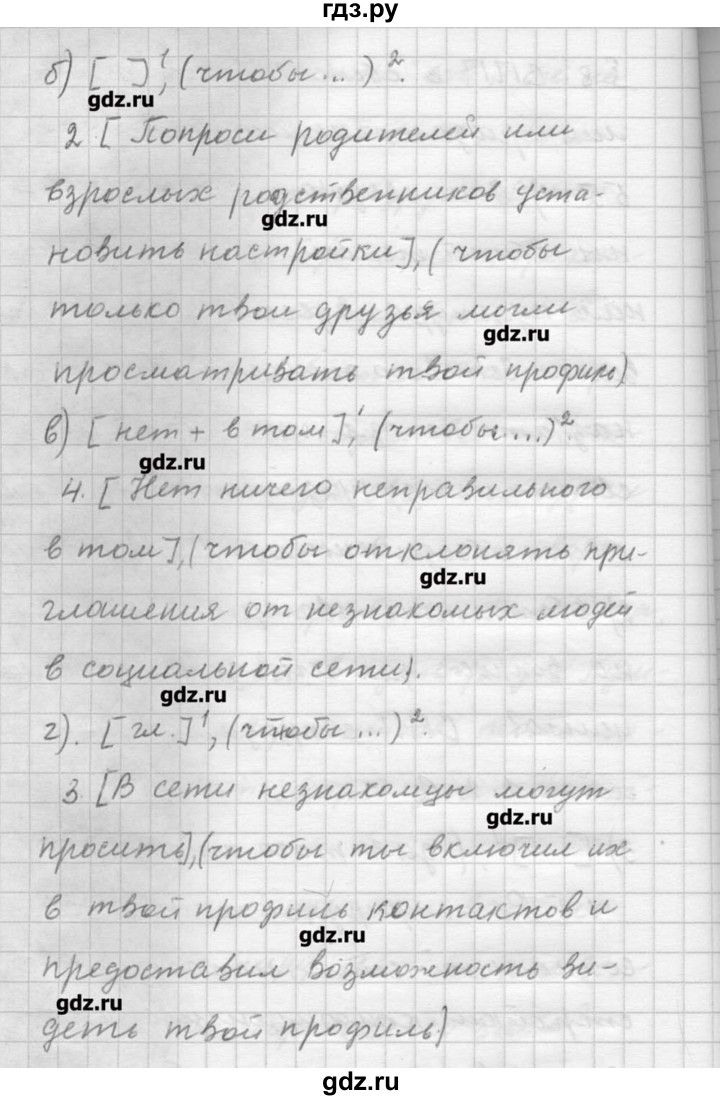 гдз.ру
б) [ ]¹, (чтобы ...)².
gdz.ru
2 [ Попроси родителей или
взрослых родственников уста-
gdz.ru
новить настройки], ( чтобы
только твои друзья могли
gdz.ru
просматривать твой профиль)
в) [ нет + в том ]¹, (чтобы ...)².
gdz.ru
4. [ Нет ничего неправильного
в том], (чтобы отклонять при-
gdz.ru
глашения от незнакомых людей
в социальной сети).
gdz.ru
г). [ гл. ]¹, (чтобы ...)².
3 [В сети незнакомцы могут
gdz.ru
просить], (чтобы ты включил их
в твой профиль контактов и
gdz.ru
предоставил возможность ви-
gdz.ru
деть твой профиль)
gdz.ru